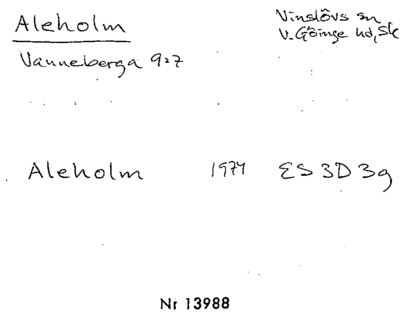 Aleholm
Vinslövs sn
V. Göinge hd, Sk
Vanneberga 9:7
Aleholm 1974 ES 3D 3g
Nr 13988